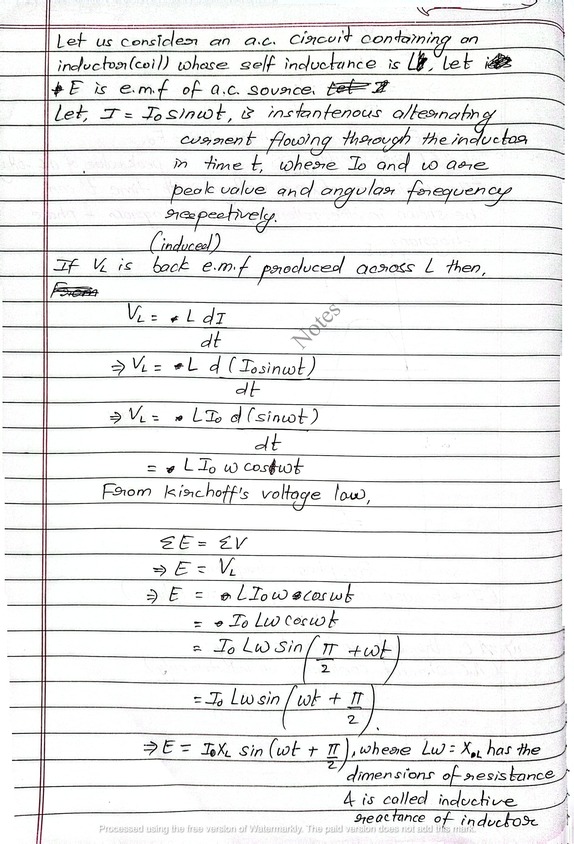 Let us consider an a.c. circuit containing an
inductor(coil) whose self inductance is L, Let
E is e.m.f of a.c. source.
Let, I = I₀ sinωt, is instantenous alternating
current flowing through the inductor
in time t, where I₀ and ω are
peak value and angular frequency
respectively.
(induced)
If V_L is back e.m.f produced across L then,
From
V_L = L dI
dt
⇒ V_L = L d (I₀sinωt)
dt
⇒ V_L = LI₀ d(sinωt)
dt
= LI₀ ω cosωt
From Kirchoff's voltage law,
ΣE = ΣV
⇒ E = V_L
⇒ E = LI₀ω cosωt
= I₀ Lω cosωt
= I₀ Lω sin(π/2 + ωt)
= I₀ Lω sin(ωt + π/2).
⇒ E = I₀X_L sin(ωt + π/2), where Lω = X_L has the
dimensions of resistance
& is called inductive
reactance of inductor
Notes
Processed using the free version of Watermarkly. The paid version does not add this mark.